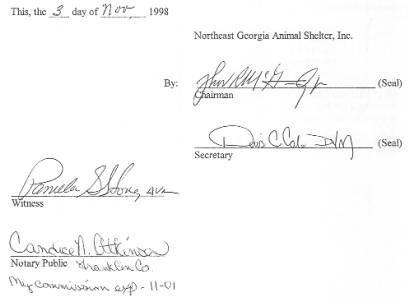 This, the 3 day of Nov, 1998
Northeast Georgia Animal Shelter, Inc.
By: (Seal)
Chairman
(Seal)
Secretary
Pamela
Witness
Candice N. Atkinson
Notary Public Franklin Co.
My Commission exp - 11-01